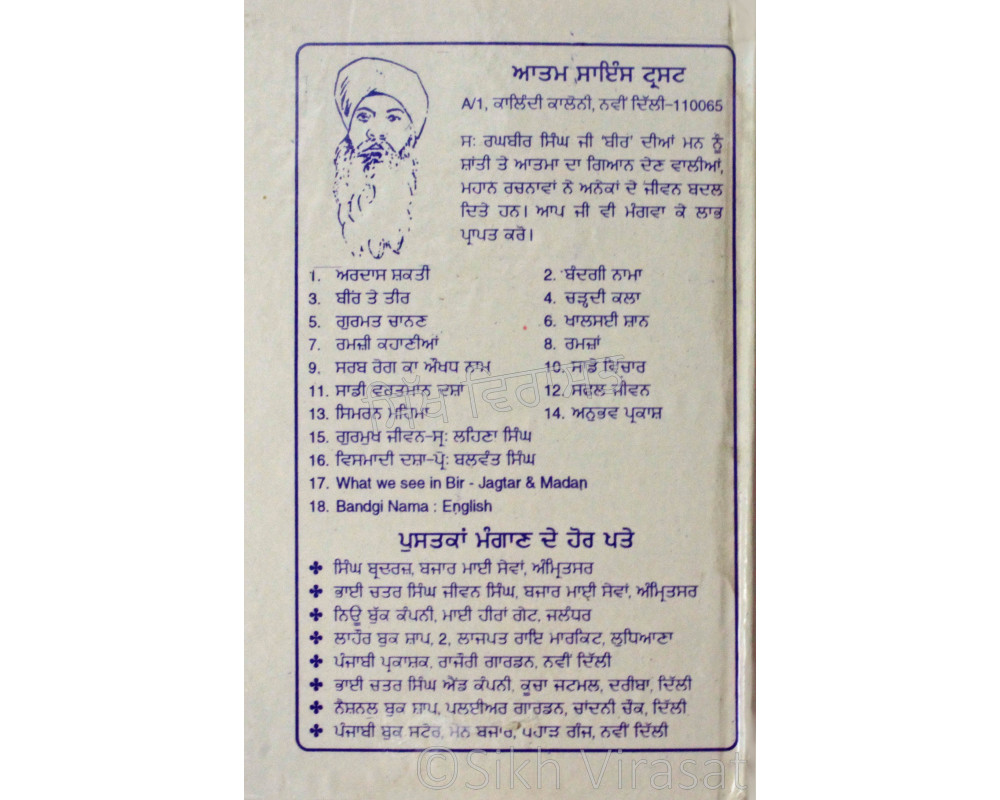 ਆਤਮ ਸਾਇੰਸ ਟ੍ਰਸਟ
A/1, ਕਾਲਿੰਦੀ ਕਾਲੋਨੀ, ਨਵੀਂ ਦਿੱਲੀ-110065
ਸ: ਰਘਬੀਰ ਸਿੰਘ ਜੀ 'ਬੀਰ' ਦੀਆਂ ਮਨ ਨੂੰ
ਸ਼ਾਂਤੀ ਤੇ ਆਤਮਾ ਦਾ ਗਿਆਨ ਦੇਣ ਵਾਲੀਆਂ,
ਮਹਾਨ ਰਚਨਾਵਾਂ ਨੇ ਅਨੇਕਾਂ ਦੇ ਜੀਵਨ ਬਦਲ
ਦਿਤੇ ਹਨ। ਆਪ ਜੀ ਵੀ ਮੰਗਵਾ ਕੇ ਲਾਭ
ਪ੍ਰਾਪਤ ਕਰੋ।
1. ਅਰਦਾਸ ਸ਼ਕਤੀ 2. ਬੰਦਗੀ ਨਾਮਾ
3. ਬੀਰ ਤੇ ਤੀਰ 4. ਚੜ੍ਹਦੀ ਕਲਾ
5. ਗੁਰਮਤ ਚਾਨਣ 6. ਖਾਲਸਈ ਸ਼ਾਨ
7. ਰਮਜ਼ੀ ਕਹਾਣੀਆਂ 8. ਰਮਜ਼ਾਂ
9. ਸਰਬ ਰੋਗ ਕਾ ਔਖਧ ਨਾਮ 10. ਸਾਡੇ ਵਿਚਾਰ
11. ਸਾਡੀ ਵਰਤਮਾਨ ਦਸ਼ਾ 12. ਸਫਲ ਜੀਵਨ
13. ਸਿਮਰਨ ਮਹਿਮਾ 14. ਅਨੁਭਵ ਪ੍ਰਕਾਸ਼
15. ਗੁਰਮੁਖ ਜੀਵਨ-ਸ੍ਰ: ਲਹਿਣਾ ਸਿੰਘ
16. ਵਿਸਮਾਦੀ ਦਸ਼ਾ-ਪ੍ਰੋ: ਬਲਵੰਤ ਸਿੰਘ
17. What we see in Bir - Jagtar & Madan
18. Bandgi Nama : English
ਪੁਸਤਕਾਂ ਮੰਗਾਣ ਦੇ ਹੋਰ ਪਤੇ
✤ ਸਿੰਘ ਬ੍ਰਦਰਜ਼, ਬਜਾਰ ਮਾਈ ਸੇਵਾਂ, ਅੰਮ੍ਰਿਤਸਰ
✤ ਭਾਈ ਚਤਰ ਸਿੰਘ ਜੀਵਨ ਸਿੰਘ, ਬਜਾਰ ਮਾਈ ਸੇਵਾਂ, ਅੰਮ੍ਰਿਤਸਰ
✤ ਨਿਊ ਬੁੱਕ ਕੰਪਨੀ, ਮਾਈ ਹੀਰਾਂ ਗੇਟ, ਜਲੰਧਰ
✤ ਲਾਹੌਰ ਬੁਕ ਸ਼ਾਪ, 2, ਲਾਜਪਤ ਰਾਇ ਮਾਰਕਿਟ, ਲੁਧਿਆਣਾ
✤ ਪੰਜਾਬੀ ਪ੍ਰਕਾਸ਼ਕ, ਰਾਜੌਰੀ ਗਾਰਡਨ, ਨਵੀਂ ਦਿੱਲੀ
✤ ਭਾਈ ਚਤਰ ਸਿੰਘ ਐਂਡ ਕੰਪਨੀ, ਕੂਚਾ ਜਟਮਲ, ਦਰੀਬਾ, ਦਿੱਲੀ
✤ ਨੈਸ਼ਨਲ ਬੁਕ ਸ਼ਾਪ, ਪਲਈਅਰ ਗਾਰਡਨ, ਚਾਂਦਨੀ ਚੌਕ, ਦਿੱਲੀ
✤ ਪੰਜਾਬੀ ਬੁਕ ਸਟੋਰ, ਮੇਨ ਬਜਾਰ, ਪਹਾੜ ਗੰਜ, ਨਵੀਂ ਦਿੱਲੀ
ਸਿੱਖ ਵਿਰਾਸਤ
©Sikh Virasat